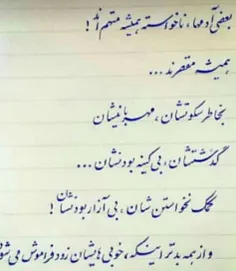 بعضی آدمها، ناخواسته همیشه متهم اند!
همیشه مقصرند...
بخاطر سکوتشان، مهربانیشان
گذشتشان، بی کینه بودنشان...
کمک نخواستن شان، بی آزار بودنشان!
و از همه بدتر اینکه، خوبی هایشان زود فراموش می شود